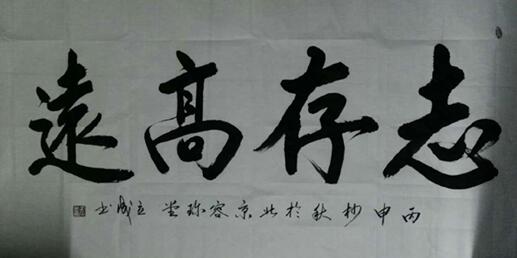 志存高遠
丙申杪秋於北京容珍堂立成书